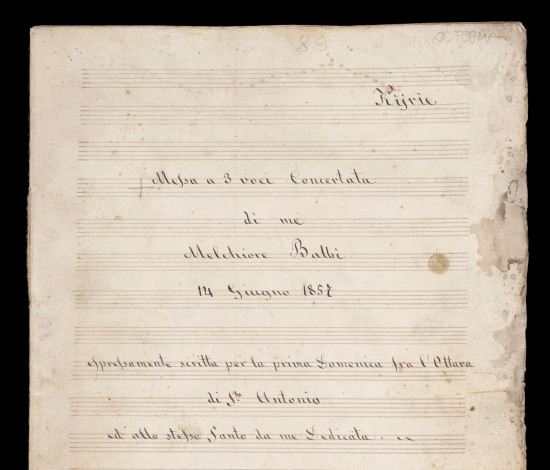 89
Kijrie
Messa a 3 voci Concertata
di me
Melchiore Balbi
14 Giugno 1857
espressamente scritta per la prima Domenica fra l'Ottava
di S. Antonio
ed allo stesso Santo da me Dedicata.